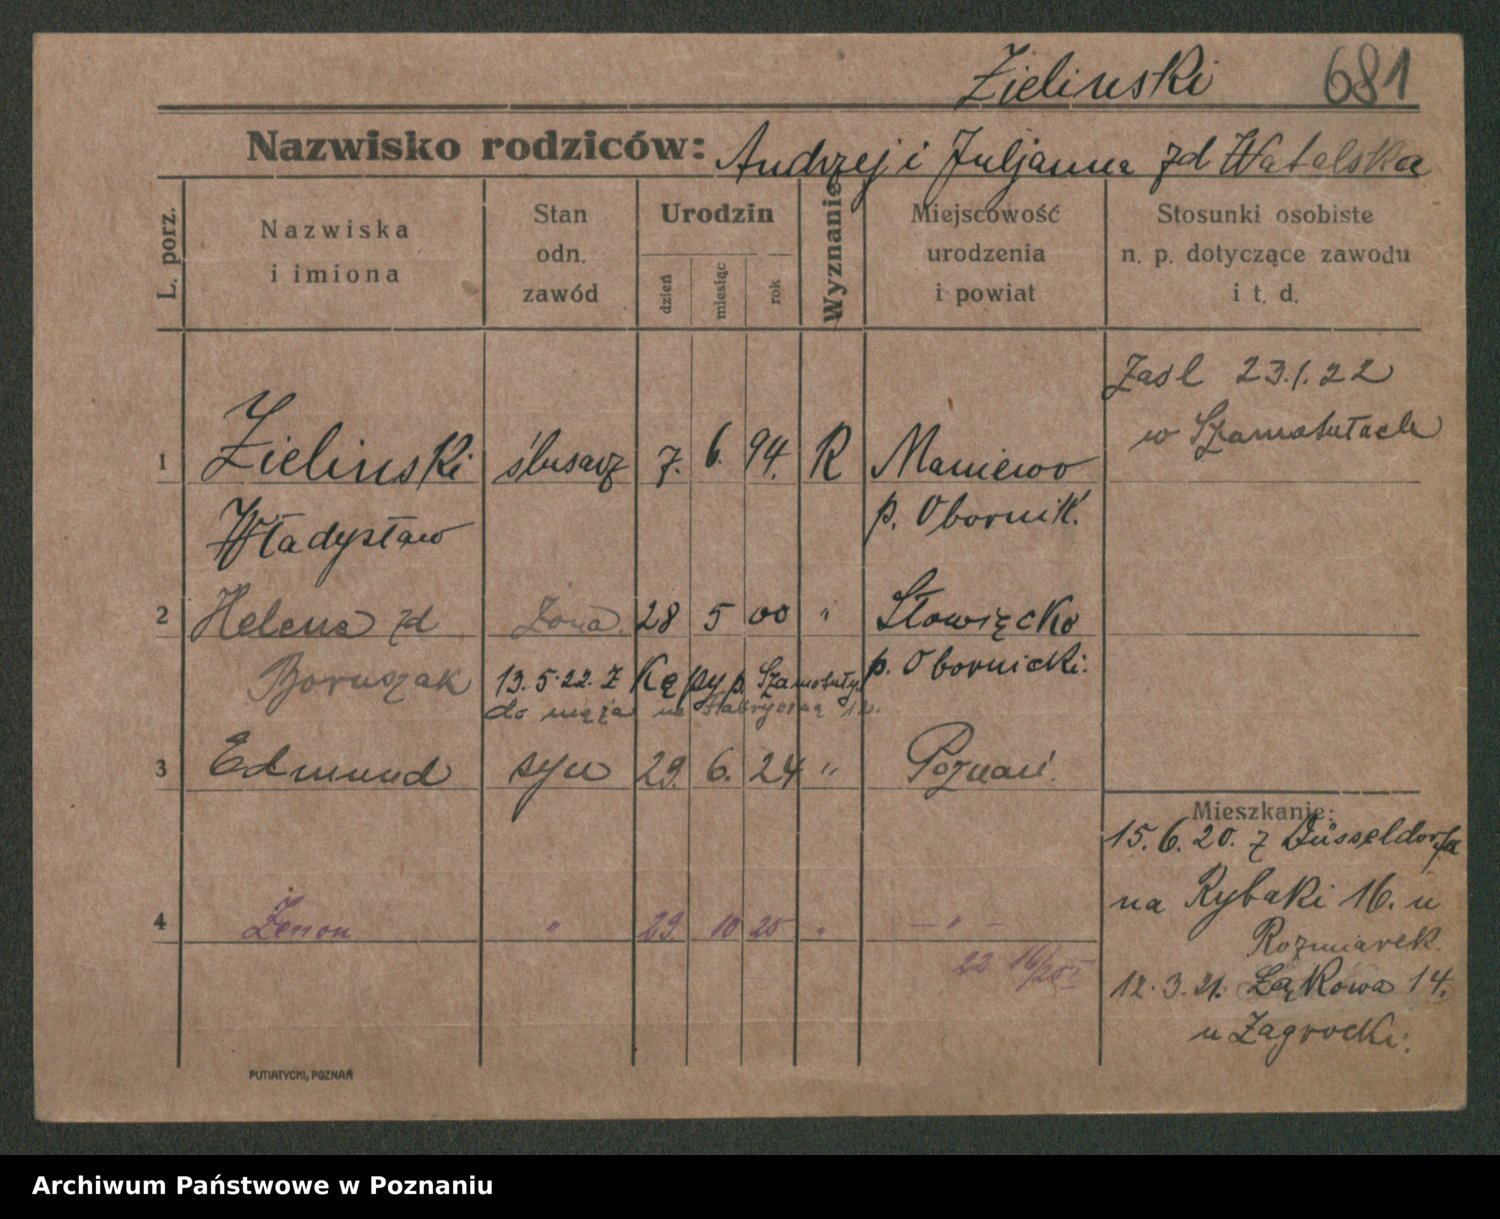 Zielinski 681
Nazwisko rodziców: Andrzej i Juljanna zd Watalska
L. porz.
Nazwiska
i imiona
Stan
odn.
zawód
Urodzin
dzień
miesiąc
rok
Wyznanie
Miejscowość
urodzenia
i powiat
Stosunki osobiste
n. p. dotyczące zawodu
i t. d.
Zasl 23.1.22
w Szamotułach
1 Zielinski ślusarz 7. 6. 94. R Maniewo
Władysław p. Obornik.
2 Helena zd żona. 28 5 00 " Słowięcko
Boruszak 13.5.22. z Kępy p. Szamotuły. p. Obornicki.
do męża na Fabryczną 12.
3 Edmund syn 29. 6. 24 " Poznań.
Mieszkanie:
15.6.20. z Düsseldorfa
na Rybaki 16. u
Rozmiarek.
12.3.21. Łąkowa 14.
u Zagrocki.
4 Zenon " 29. 10 25 " — " —
22 16/25 I
PUTIATYCKI, POZNAŃ
Archiwum Państwowe w Poznaniu